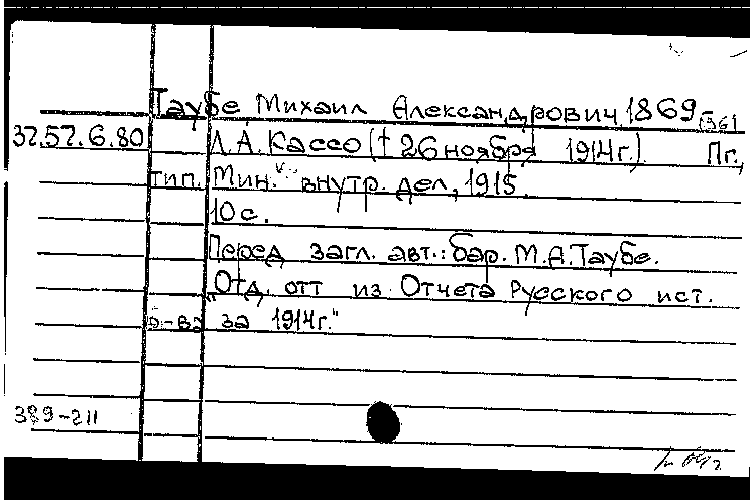 Таубе, Михаил Александрович, 1869-1961
37.57.6.80 Л.А. Кассо († 26 ноября 1914г.) Пг.,
тип. Мин. внутр. дел, 1915.
10с.
Перед загл. авт.: бар. М.А. Таубе.
"Отд. отт из Отчета Русского ист.
о-ва за 1914г."
389-211